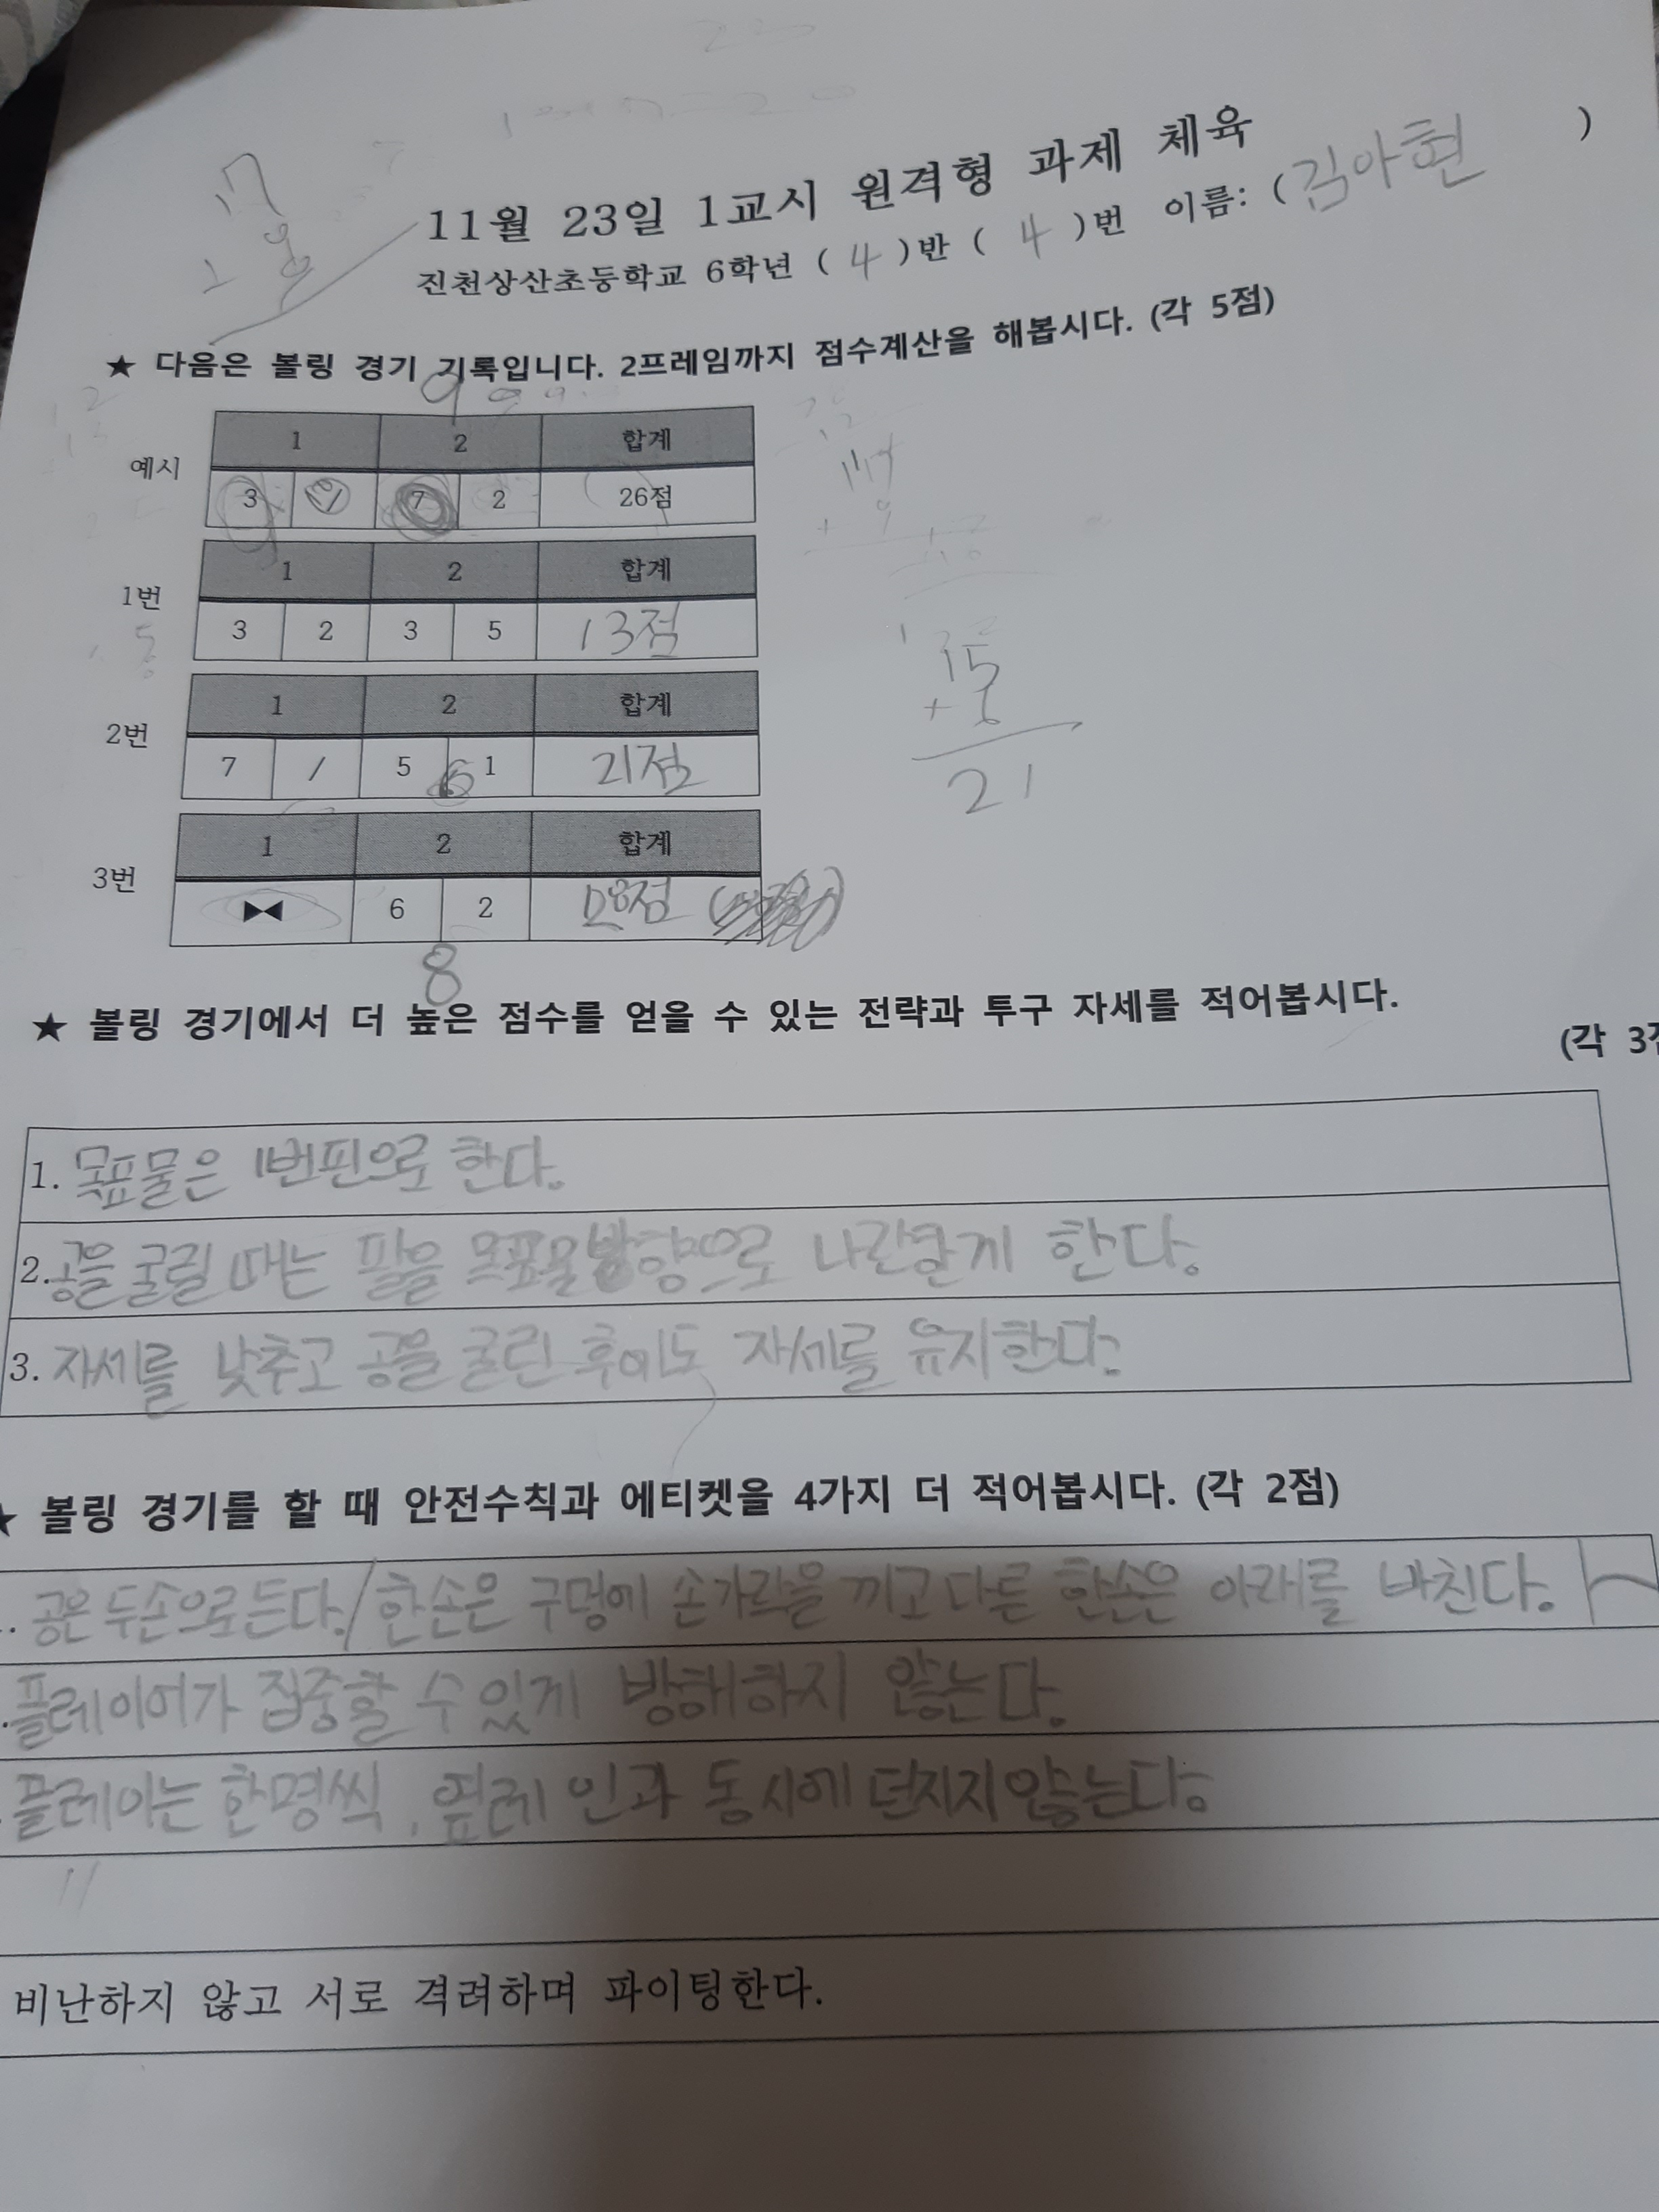 11월 23일 1교시 원격형 과제 체육
진천상산초등학교 6학년 ( 4 )반 ( 4 )번 이름: ( 김아현 )
★ 다음은 볼링 경기 기록입니다. 2프레임까지 점수계산을 해봅시다. (각 5점)
9
예시
1 2 합계
3 / 7 2 26점
1번
1 2 합계
3 2 3 5 13점
2번
1 2 합계
7 / 5 1 21점
6
3번
1 2 합계
▶◀ 6 2
8
17
9
15
+ 6
21
★ 볼링 경기에서 더 높은 점수를 얻을 수 있는 전략과 투구 자세를 적어봅시다.
(각 3점
1. 목표물은 1번핀으로 한다.
2. 공을 굴릴 때는 팔을 목표물방향으로 나란하게 한다.
3. 자세를 낮추고 공을 굴린 후에도 자세를 유지한다.
★ 볼링 경기를 할 때 안전수칙과 에티켓을 4가지 더 적어봅시다. (각 2점)
. 공은 두손으로 든다./한손은 구멍에 손가락을 끼고 다른 한손은 아래를 바친다.
. 플레이어가 집중할 수 있게 방해하지 않는다.
플레이는 한명씩, 옆레인과 동시에 던지지 않는다.
비난하지 않고 서로 격려하며 파이팅한다.